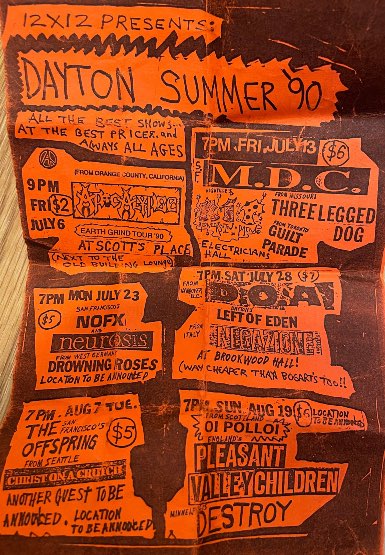 12X12 PRESENTS:
DAYTON SUMMER '90
ALL THE BEST SHOWS...
AT THE BEST PRICER, and
ALWAYS ALL AGES
(FROM ORANGE COUNTY, CALIFORNIA)
9 PM
FRI $2
JULY 6
EARTH GRIND TOUR '90
AT SCOTT'S PLACE
(NEXT TO THE
OLD BUILDING LOUNGE)
7PM. FRI, JULY 13 $6
M.D.C.
FROM MISSOURI
THREE LEGGED
DOG
FROM TORONTO
GUILT
PARADE
ELECTRICIANS
HALL
7PM MON JULY 23
$5
SAN FRANCISCO'S
NOFX
AND
neurosis
FROM WEST GERMANY
DROWNING ROSES
LOCATION TO BE ANNOUNCED
7PM. SAT JULY 28 $7
FROM VANCOUVER
D.O.A!
DETROIT'S
LEFT OF EDEN
FROM ITALY
NEGAZIONE!
AT BROOKWOOD HALL!
(WAY CHEAPER THAN BOGART'S TOO!!)
7PM. AUG 7 TUE.
THE SAN FRANCISCO'S
OFFSPRING
$5
FROM SEATTLE
CHRIST ON A CRUTCH
ANOTHER GUEST TO BE
ANNOUCED. LOCATION
TO BE ANNOUNCED.
7PM. SUN. AUG 19 $6 LOCATION
TO BE ANNOUNCED
FROM SCOTLAND
OI POLLOI
ENGLAND'S
PLEASANT
VALLEY CHILDREN
DESTROY